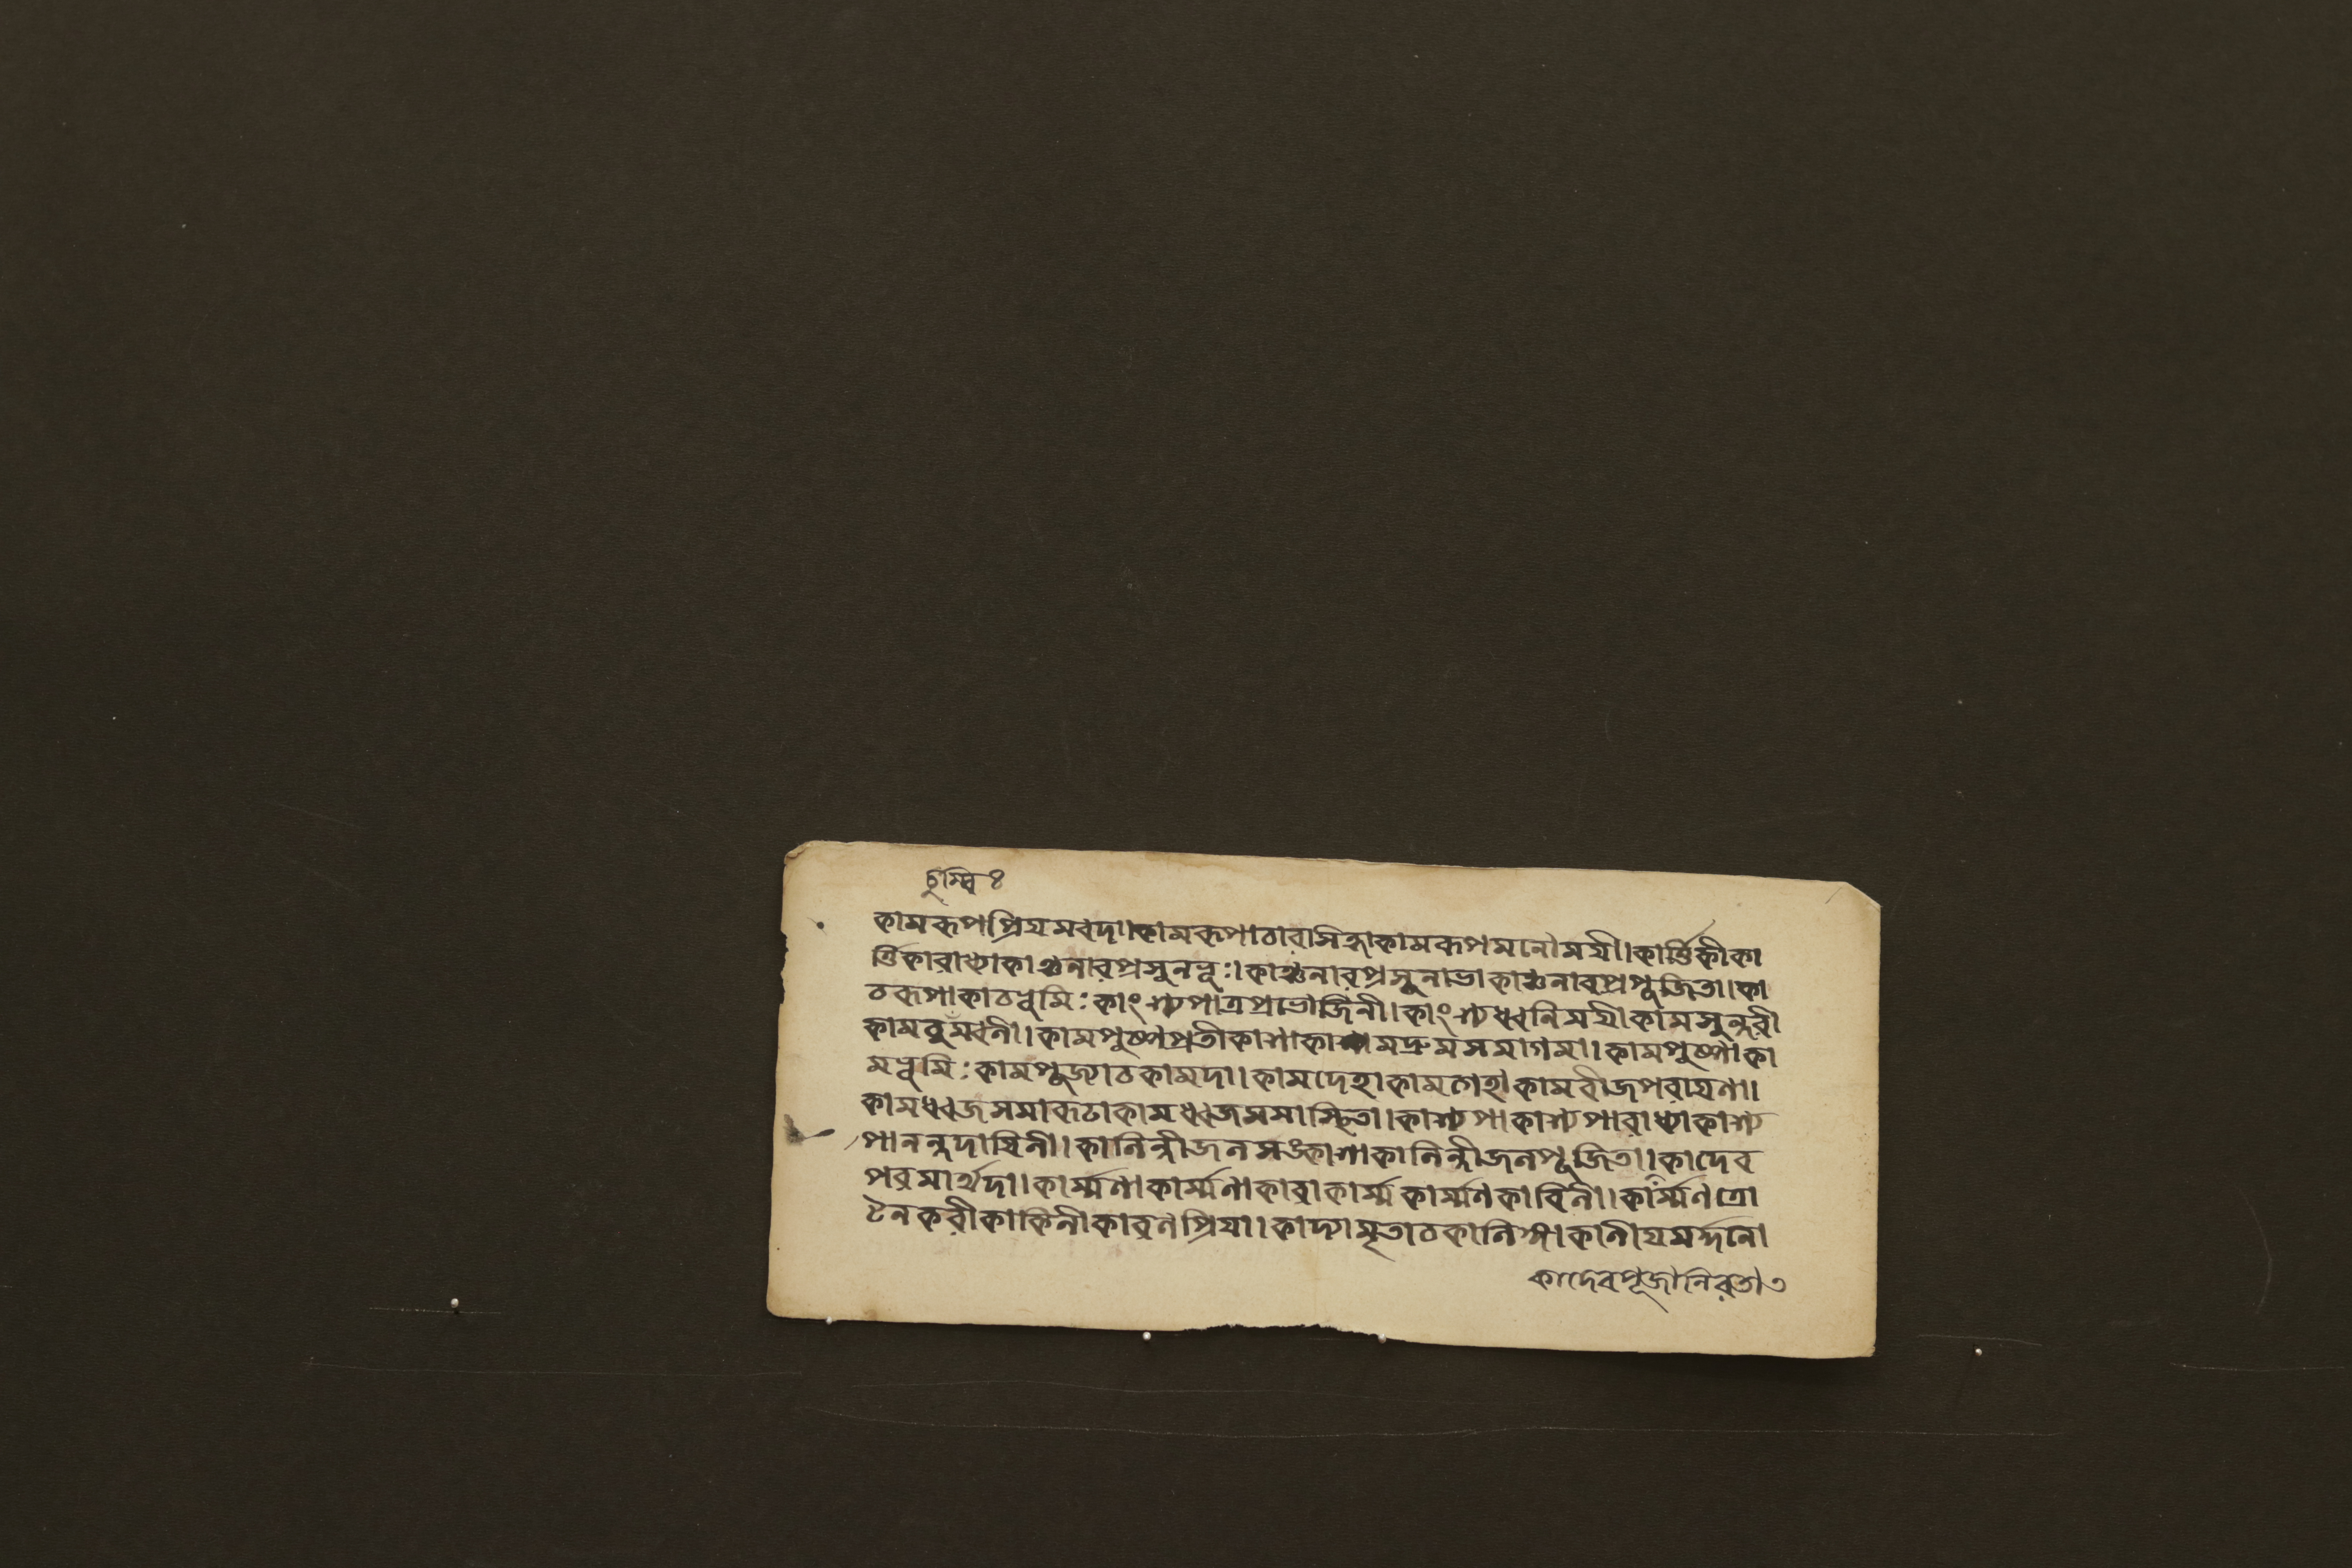 চুম্বি ৪
কামরূপপ্রিয়মবদা।কামরূপাচারাসিহ্লাকামরূপমনোময়ী।কার্ত্তিকীকা
র্ত্তিকারাধ্যাকাঞ্চনারপ্রসুনভূঃ।কাঞ্চনারপ্রসূনাভাকাঞ্চনারপ্রপূজিতা।কা
চরূপাকাচভূমিঃকাংশ্যপাত্রপ্রভোজিনী।কাংশ্যধ্বনিময়ীকামসুন্দরী
কামপুষ্পপ্রতীকাশাকামদ্রুমসমাগমা।কামপুষ্পাকা
মভূমিঃকামপুজ্যাচকামদা।কামদেহাকামগেহাকামবীজপরায়ণা।
কামধ্বজসমারূঢাকামধ্বজসমাস্থিতা।কাশ্যপাকাশ্যপারাধ্যাকাশ্য
পানন্দদায়িনী।কালিন্দীজলসঙ্কাশাকালিন্দীজলপূজিতা।কাদেব
পরমার্থদা।কার্ম্মণাকার্ম্মণাকারাকার্ম্মকার্ম্মণকারিনী।কার্ম্মণত্রো
টনকরীকাকিনীকারণপ্রিয়া।কাব্যামৃতাচকালিঙ্গাকালীয়মর্দ্দনো
কাদেবপূজানিরতা৩